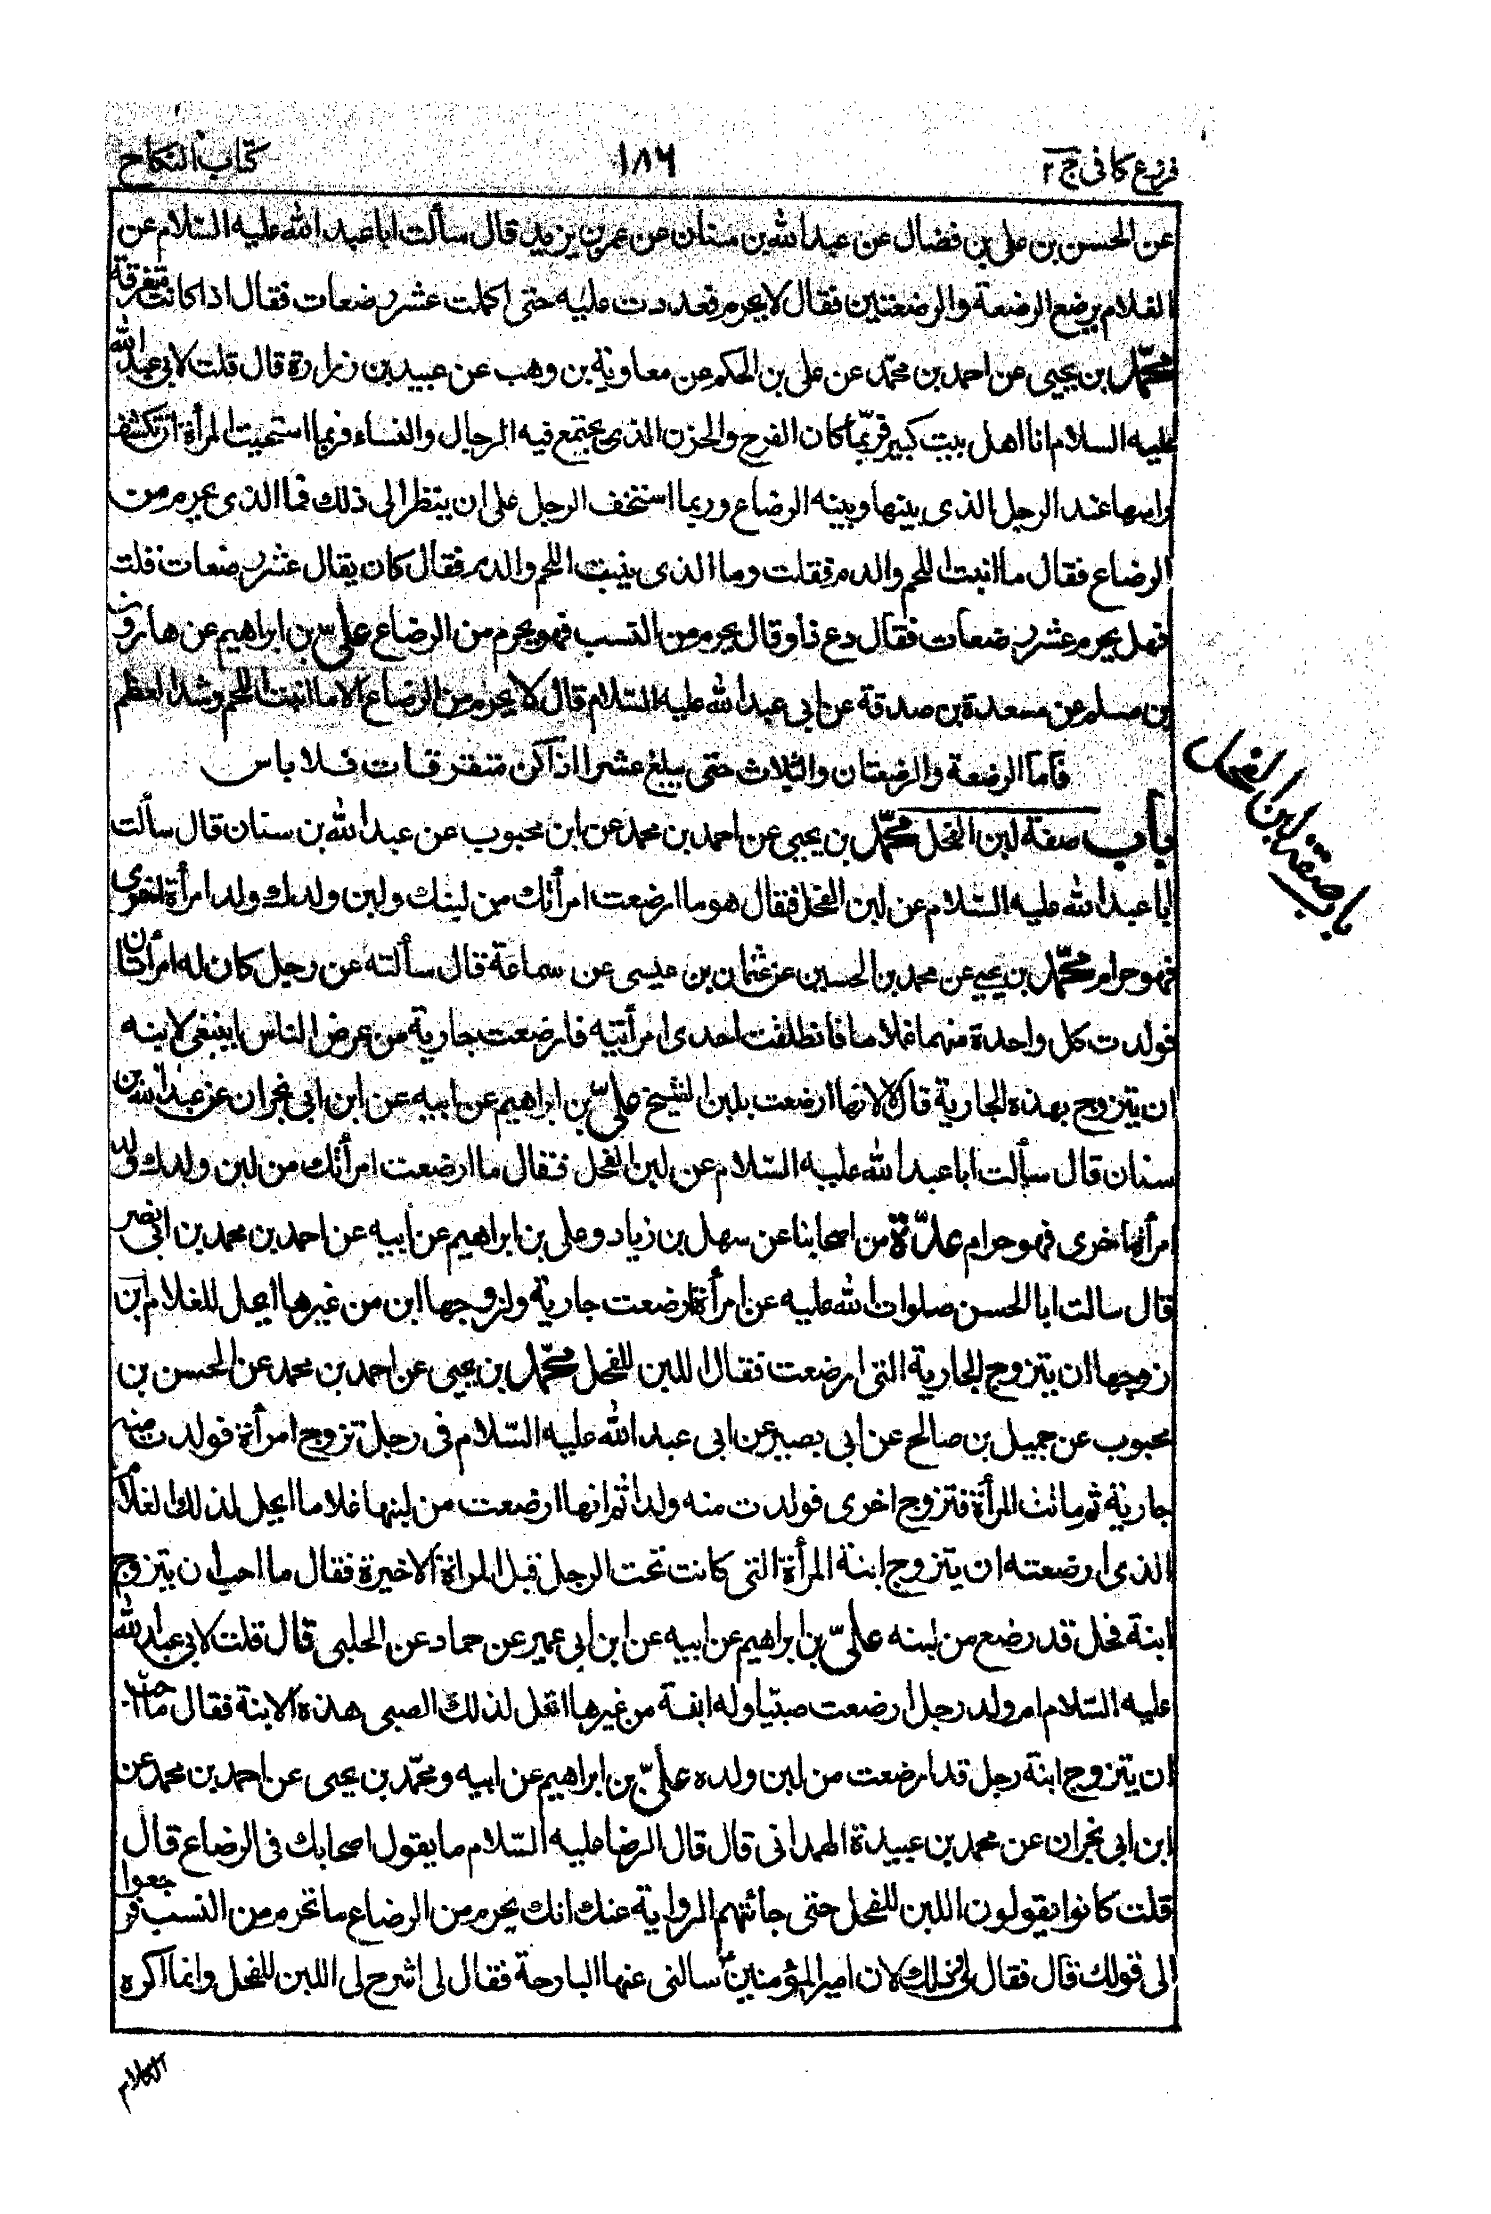 فروع كافى ج ٢
١٨٦
كتاب النكاح
عن الحسن بن على بن فضال عن عبد الله بن سنان عن عمر بن يزيد قال سألت ابا عبد الله عليه السّلام عن
الغلام يرضع الرضعة والرضعتين فقال لا يحرم فعددت عليه حتى اكملت عشر رضعات فقال اذا كانت متفرقة
محمّد بن يحيى عن احمد بن محمّد عن على بن الحكم عن معاوية بن وهب عن عبيد بن زرارة قال قلت لابى عبد الله
عليه السلام انا اهل بيت كبير فربّما كان الفرح والحزن الذى يجتمع فيه الرجال والنساء فربما استحيت المرأة ان تكشف
راسها عند الرجل الذى بينها وبينه الرضاع وربما استخف الرجل على ان ينظر الى ذلك فما الذى يحرم من
الرضاع فقال ما انبت اللحم والدم فقلت وما الذى ينبت اللحم والدم فقال كان يقال عشر رضعات قلت
فهل يحرم عشر رضعات فقال دع ذا وقال يحرم من النسب فهو يحرم من الرضاع علىّ بن ابراهيم عن هارون
بن مسلم عن مسعدة بن صدقة عن ابى عبد الله عليه السّلام قال لا يحرم من الرضاع الا ما انبت اللحم وشد العظم
فاما الرضعة والرضعتان والثلاث حتى يبلغ عشرا اذا كن متفرقات فلا باس
باب صفة لبن الفحل محمّد بن يحيى عن احمد بن محمد عن ابن محبوب عن عبد الله بن سنان قال سألت
ابا عبد الله عليه السّلام عن لبن الفحل فقال هو ما ارضعت امرأتك من لبنك ولبن ولدك ولد امرأة اخرى
فهو حرام محمّد بن يحيى عن محمد بن الحسين عن عثمان بن عيسى عن سماعة قال سألته عن رجل كان له امرأتان
فولدت كل واحدة منهما غلاما فانطلقت احدى امرأتيه فارضعت جارية من عرض الناس اينبغى لابنه
ان يتزوج بهذه الجارية قال لا لانها ارضعت بلبن الشيخ علىّ بن ابراهيم عن ابيه عن ابن ابى نجران عن عبد الله بن
سنان قال سألت ابا عبد الله عليه السّلام عن لبن الفحل فقال ما ارضعت امرأتك من لبن ولدك ولد
امرأة اخرى فهو حرام عدّة من اصحابنا عن سهل بن زياد وعلى بن ابراهيم عن ابيه عن احمد بن محمد بن ابى نصر
قال سالت ابا الحسن صلوات الله عليه عن امرأة ارضعت جارية ولزوجها ابن من غيرها ايحل للغلام ابن
زوجها ان يتزوج الجارية التى ارضعت فقال اللبن للفحل محمّد بن يحيى عن احمد بن محمد عن الحسن بن
محبوب عن جميل بن صالح عن ابى بصير عن ابى عبد الله عليه السّلام فى رجل تزوج امرأة فولدت منه
جارية ثم ماتت المرأة فتزوج اخرى فولدت منه ولدا ثم انها ارضعت من لبنها غلاما ايحل لذلك الغلام
الذى ارضعته ان يتزوج ابنة المرأة التى كانت تحت الرجل قبل المرأة الاخيرة فقال ما احب ان يتزوج
ابنة فحل قد رضع من لبنه علىّ بن ابراهيم عن ابيه عن ابن ابى عمير عن حماد عن الحلبى قال قلت لابى عبد الله
عليه السّلام ام ولد رجل ارضعت صبيّا وله ابنة من غيرها اتحل لذلك الصبى هذه الابنة فقال ما احب
ان يتزوج ابنة رجل قد ارضعت من لبن ولده علىّ بن ابراهيم عن ابيه ومحمّد بن يحيى عن احمد بن محمد عن
ابن ابى نجران عن محمد بن عبيدة الهمدانى قال قال الرضا عليه السّلام ما يقول اصحابك فى الرضاع قال
قلت كانوا يقولون اللبن للفحل حتى جائتهم الرواية عنك انك يحرم من الرضاع ما تحرم من النسب فرجعوا
الى قولك قال فقال لى وذلك لان امير المؤمنين سالنى عنها البارحة فقال لى اشرح لى اللبن للفحل وانما اكره
الكلام
باب صفة لبن الفحل